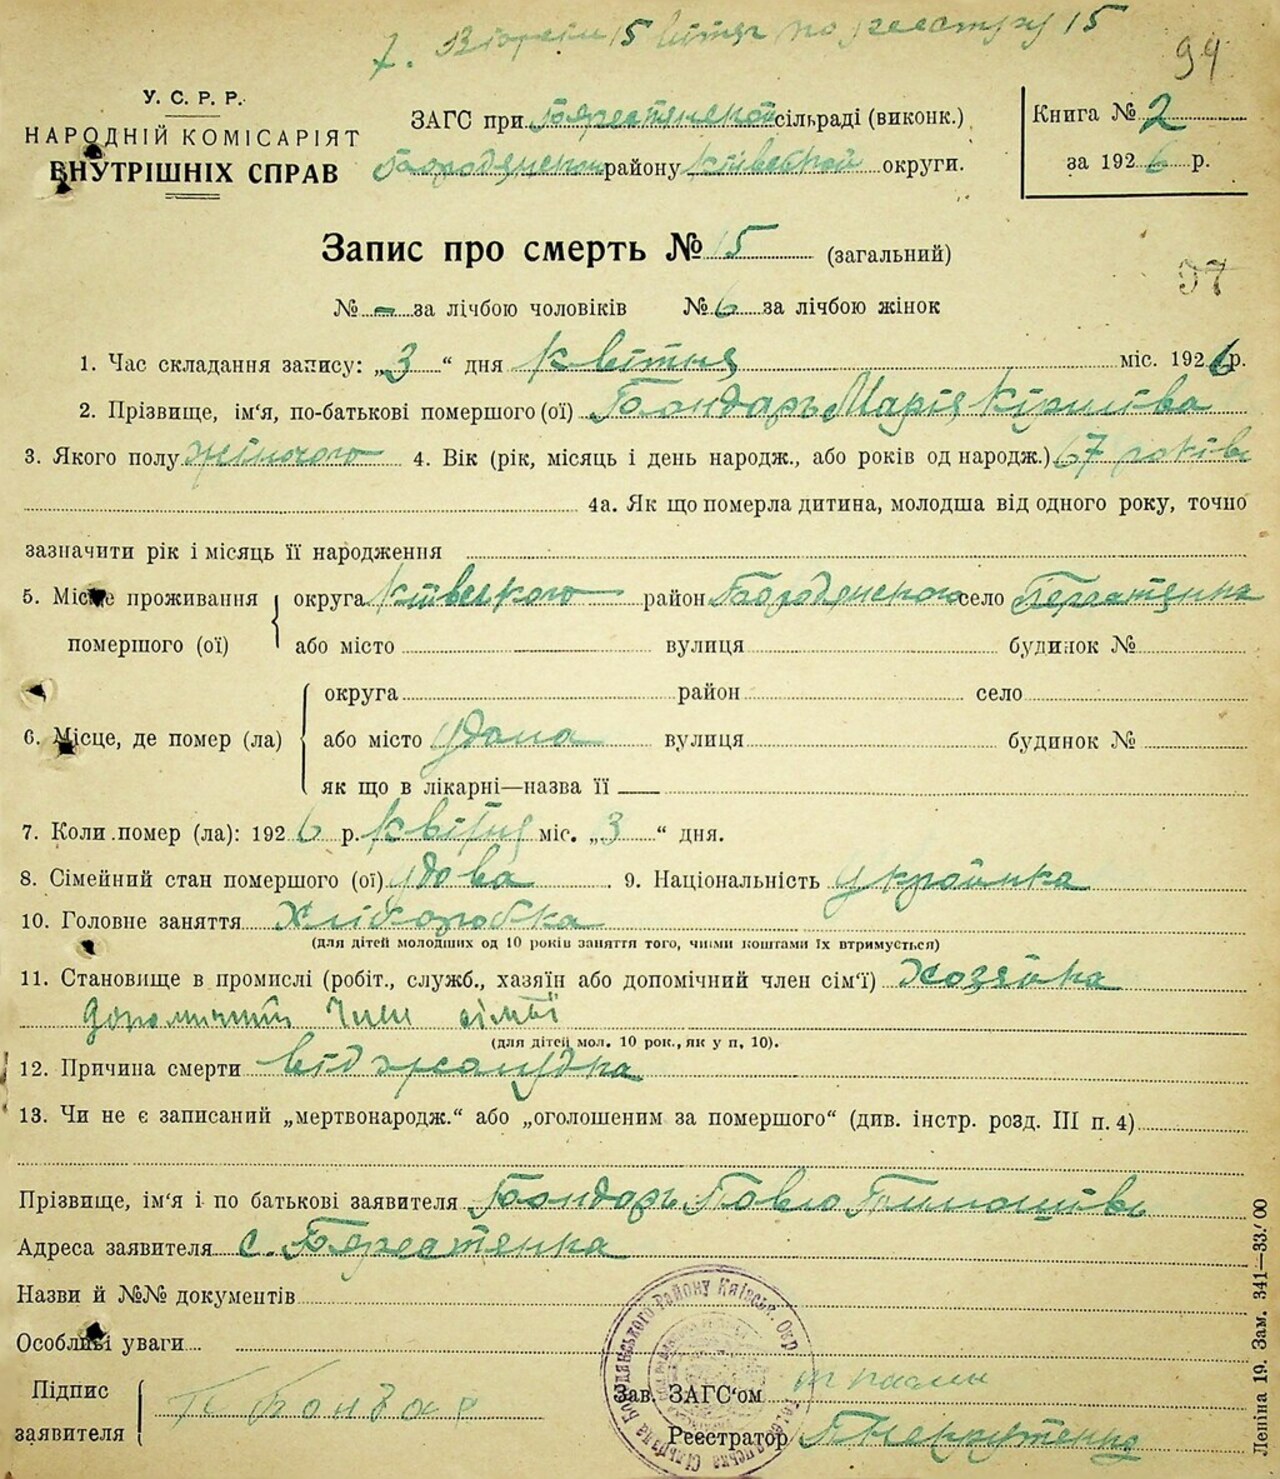 7. 15 по реестру 15
94
У. С. Р. Р.
НАРОДНІЙ КОМІСАРІЯТ
ВНУТРІШНІХ СПРАВ
ЗАГС при Берестянской сільраді (виконк.)
Бородянском району Київской округи.
Книга № 2
за 1926 р.
Запис про смерть № 15 (загальний)
97
№ - за лічбою чоловіків № 6 за лічбою жінок
1. Час складання запису: „3“ дня Квітня міс. 1926 р.
2. Прізвище, ім‘я, по-батькові помершого (ої) Бондарь Марія
3. Якого полу жіночого 4. Вік (рік, місяць і день народж., або років од народж.) 67 років
4а. Як що померла дитина, молодша від одного року, точно
зазначити рік і місяць її народження
5. Місце проживання округа Київского район Бородянского село Берестянка
помершого (ої) або місто вулиця будинок №
округа район село
6. Місце, де помер (ла) або місто удома вулиця будинок №
як що в лікарні—назва її
7. Коли помер (ла): 1926 р. Квітня міс. „3“ дня.
8. Сімейний стан помершого (ої) удова 9. Національність українка
10. Головне заняття Хліборобка
(для дітей молодших од 10 років заняття того, чиїми коштами їх втримується)
11. Становище в промислі (робіт., служб., хазяїн або допомічний член сім‘ї) Хозяйка
член сімьї
(для дітей мол. 10 рок., як у п. 10).
12. Причина смерти від жолудка
13. Чи не є записаний „мертвонародж.“ або „оголошеним за помершого“ (див. інстр. розд. III п. 4)
Прізвище, ім‘я і по батькові заявителя Бондарь Павло
Адреса заявителя с. Берестянка
Назви й №№ документів
Особливі уваги
Підпис
заявителя П Бондар
Зав. ЗАГС‘ом
Реестратор
Бородянського Району Київськ. Окр.
Леніна 19. Зам. 341—33.000